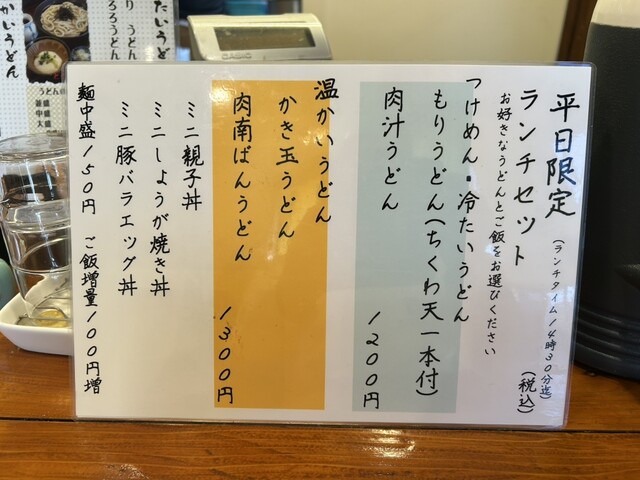 平日限定
(ランチタイム14時30分迄)
ランチセット
(税込)
お好きなうどんとご飯をお選びください
つけめん・冷たいうどん
もりうどん(ちくわ天一本付)
肉汁うどん
1200円
温かいうどん
かき玉うどん
肉南ばんうどん
1300円
ミニ親子丼
ミニしょうが焼き丼
ミニ豚バラエッグ丼
麺中盛150円 ご飯増量100円増